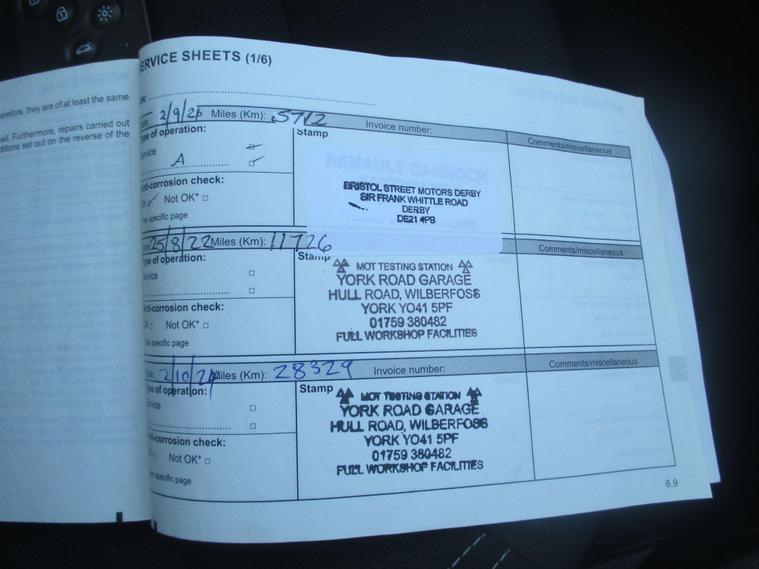 ERVICE SHEETS (1/6)
erefore, they are of at least the same
ell. Furthermore, repairs carried out
ditions set out on the reverse of the
Miles (Km): 5712 Invoice number: Comments/miscellaneous
ype of operation:
ervice
A
nti-corrosion check:
Not OK*
specific page
Stamp
RENAULT CANNOCK
BRISTOL STREET MOTORS DERBY
SIR FRANK WHITTLE ROAD
DERBY
DE21 4PB
25/8/22 Miles (Km): 11726 Comments/miscellaneous
ype of operation:
ervice
nti-corrosion check:
Not OK*
specific page
Stamp
MOT TESTING STATION
YORK ROAD GARAGE
HULL ROAD, WILBERFOSS
YORK YO41 5PF
01759 380482
FULL WORKSHOP FACILITIES
2/10/24 Miles (Km): 28329 Invoice number: Comments/miscellaneous
ype of operation:
ervice
nti-corrosion check:
Not OK*
specific page
Stamp
MOT TESTING STATION
YORK ROAD GARAGE
HULL ROAD, WILBERFOSS
YORK YO41 5PF
01759 380482
FULL WORKSHOP FACILITIES
6.9